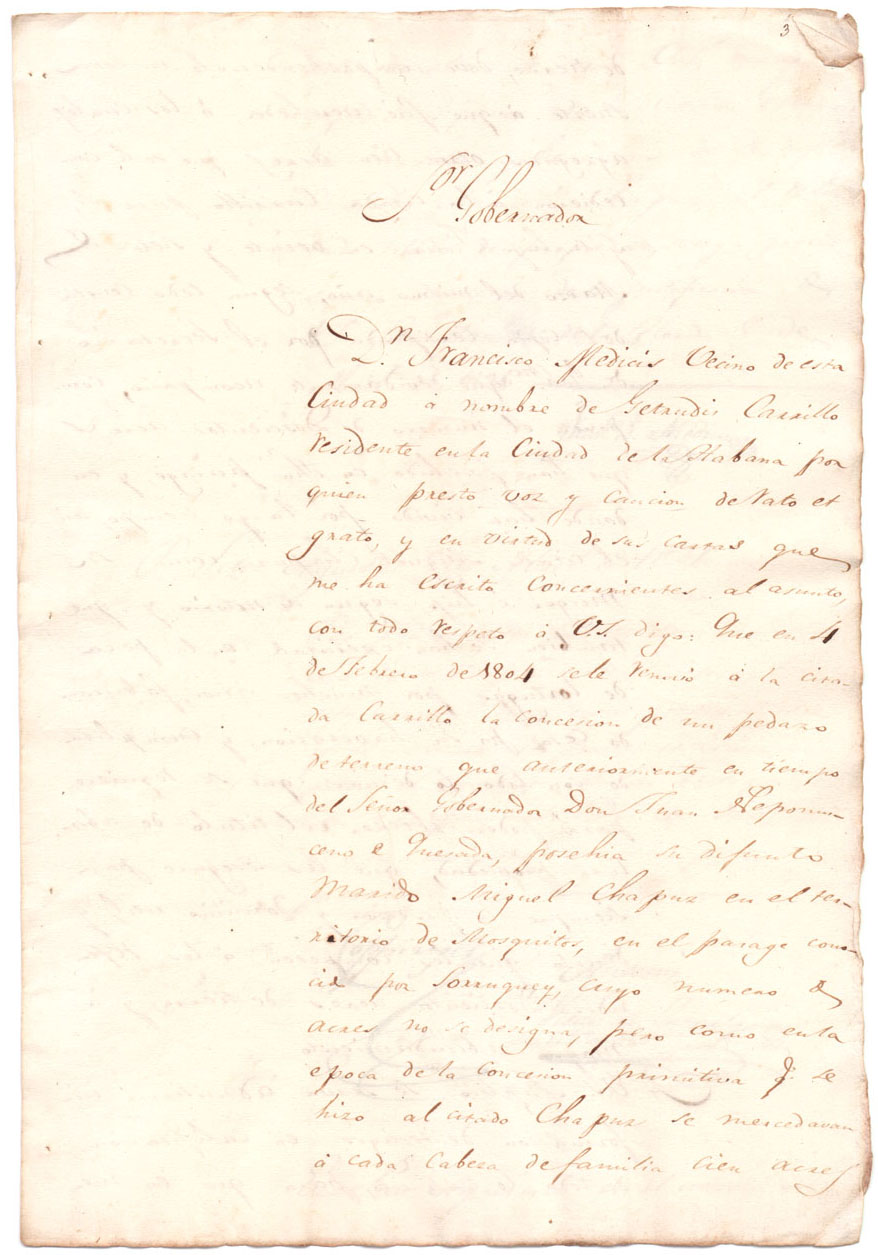 3
Sor Gobernador
Dn. Francisco Medicis Vecino de esta
Ciudad á nombre de Getrudis Carrillo
residente en la Ciudad de la Habana por
quien presto voz y cancion de rato et
grato, y en virtud de sus cartas que
me ha escrito concernientes al asunto,
con todo respeto á V.S. digo: Que en 4
de Febrero de 1804 se le renovó á la cita-
da Carrillo la concesion de un pedazo
de terreno que anteriormente en tiempo
del Señor Gobernador Don Juan Nepomu-
ceno e Quesada, posehia su difunto
Marido Miguel Chapuz en el ter-
ritorio de Mosquitos, en el parage cono-
cid por, cuyo numero de
acres no se designa, pero como en la
epoca de la Concesion primitiva q. se
hizo al citado Chapuz se mercedavan
á cada Cabeza de familia cien acres